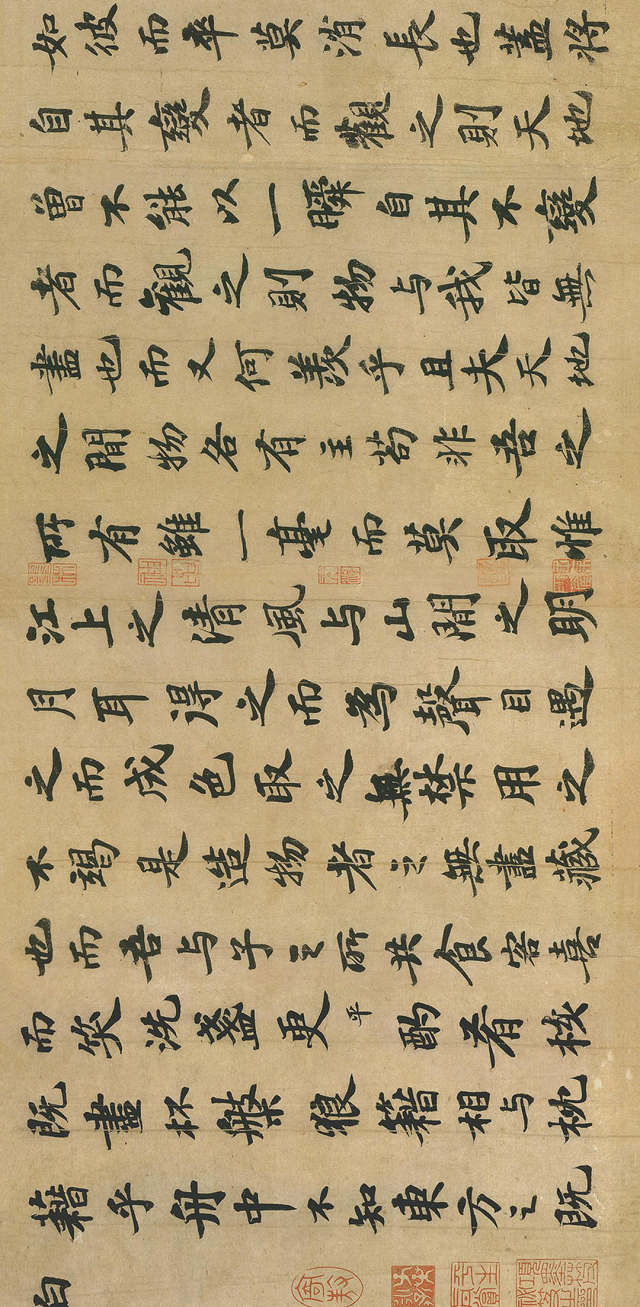 如彼而卒莫消長也蓋將
自其變者而觀之則天地
曾不能以一瞬自其不變
者而觀之則物与我皆無
盡也而又何羨乎且夫天地
之間物各有主苟非吾之
所有雖一毫而莫取惟
江上之清風与山間之明
月耳得之而為聲目遇
之而成色取之無禁用之
不竭是造物者之無盡藏
也而吾与子之所共食客喜
而笑洗盞更平酌肴核
既盡杯槃狼籍相与枕
藉乎舟中不知東方之既
白